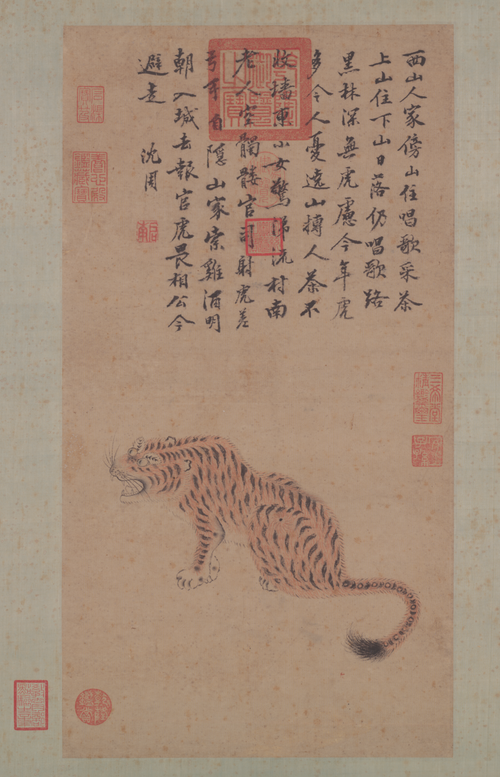 西山人家傍山住唱歌采茶
上山住下山日落仍唱歌路
黑林深無虎慮今年虎
多令人憂遶山搏人茶不
收墻東小女驚涕流村南
老人空髑髏官司射虎差
弓手自隱山家索雞酒明
朝入城去報官虎畏相公今
避走
沈周
三希堂精鑑璽
宜子孫